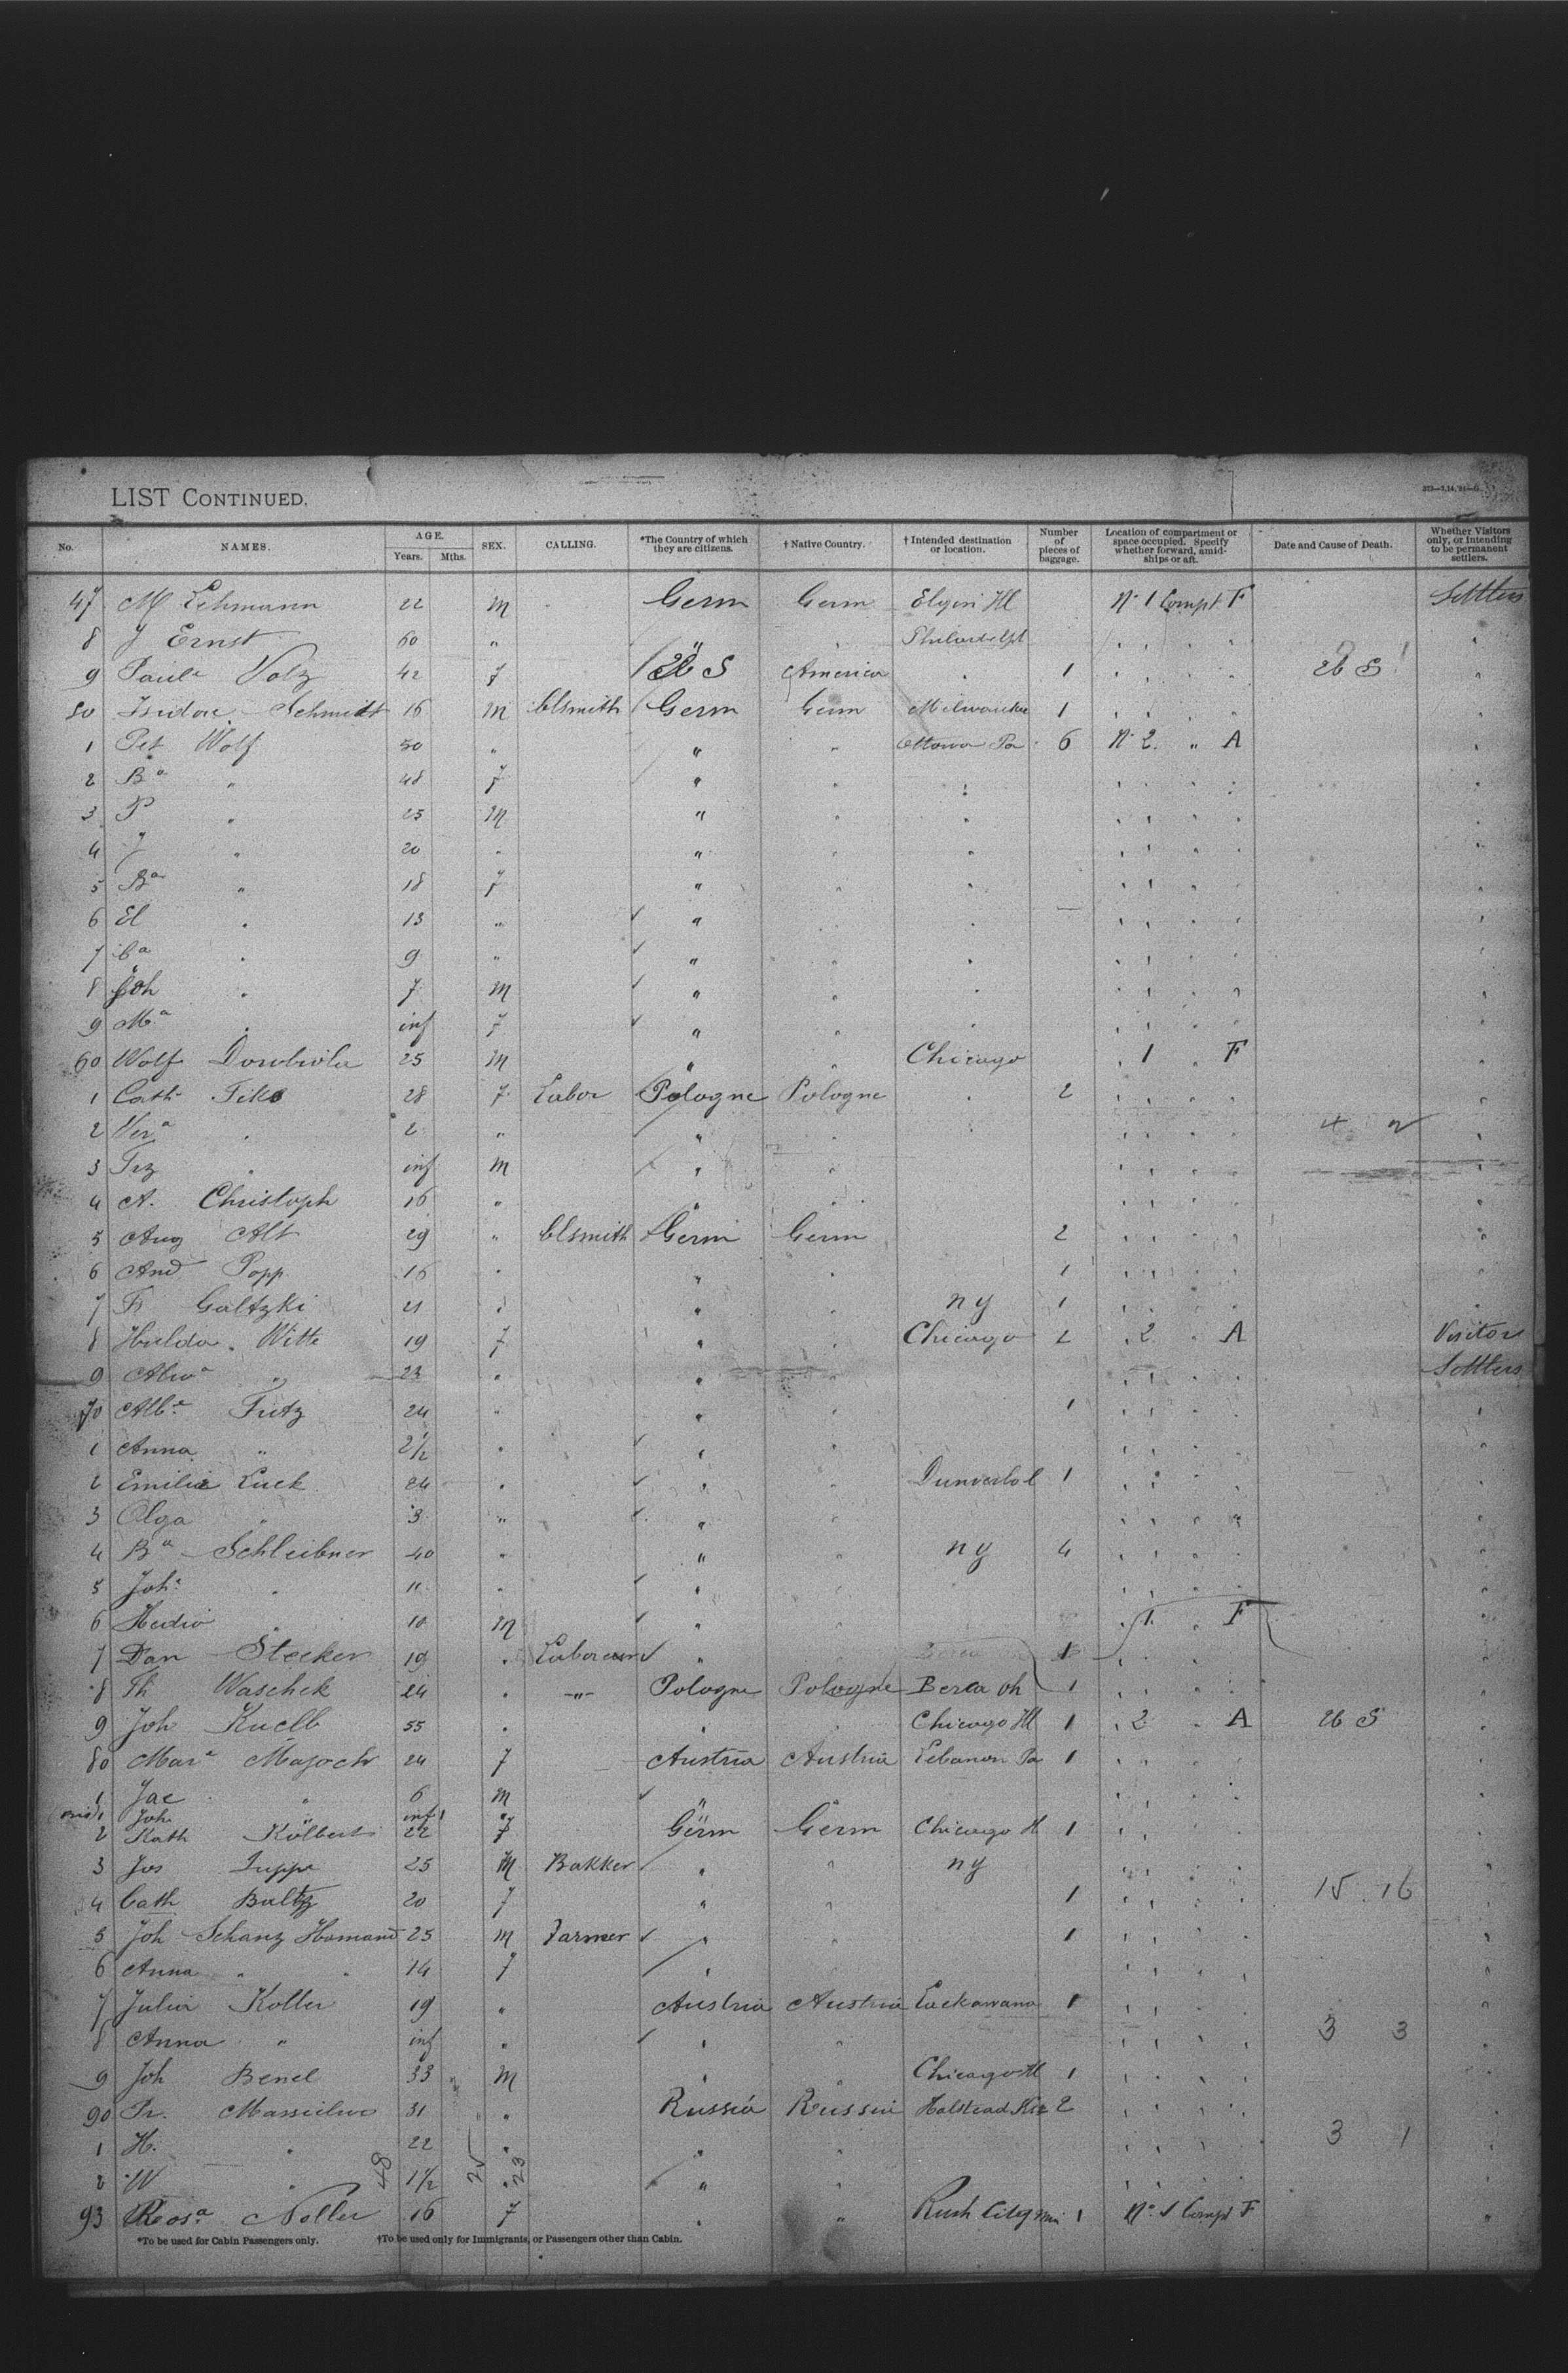 LIST CONTINUED.
No. NAMES. AGE. Years. Mths. SEX. CALLING. *The Country of which they are citizens. † Native Country. † Intended destination or location. Number of pieces of baggage. Location of compartment or space occupied. Specify whether forward, amidships or aft. Date and Cause of Death. Whether Visitors only, or intending to be permanent settlers.
47 M Lehmann 22 m Germ Germ Elgin Ill No 1 Compt F Settlers
8 J Ernst 60 " " Philadelph
9 Paula Volz 42 f S America 1 26 S
50 Isidor Schmidt 16 m Clsmith Germ Germ Milwaukee 1
1 Pet Wolf 50 " " Ottowa Pa 6 No 2 " A
2 Ba " 48 f "
3 P " 25 m "
4 J " 20 " "
5 Ba " 18 f "
6 El " 13 " "
7 Ca " 9 " "
8 Joh " 7 m "
9 Ma " inf f "
60 Wolf 25 m " Chicago 1 F
1 Cath Fiks 28 f Labor Pologne Pologne 2
2 Vera " 2 " " 4
3 Frz " inf m "
4 A. Christoph 16 " "
5 Aug Alt 29 " Clsmith Germ Germ 2
6 And Popp 16 " " 1
7 Fr Galtzki 21 " " ny 1
8 Hulda Witte 19 f " Chicago 2 2 A Visitor
9 Alwa " 23 " " Settlers
70 Alba Fritz 24 " " 1
1 Anna " 2½ " "
2 Emilie Luck 24 " " 1
3 Olga " 3 " "
4 Ba Schleibner 40 " " ny 4
5 Joha " 11 " "
6 " 10 m " 1 F
7 Dan Stecker 19 " " 1
8 Th Waschek 24 " " Pologne Pologne Berea oh 1
9 Joh Kuelb 55 " " Chicago Ill 1 2 A 26 S
80 Mara Majoch 24 f Austria Austria Lebanon Pa 1
1 Jac " 6 m "
Joh " inf "
2 Kath Kölbert 22 f Germ Germ Chicago Il 1
3 Jos Juppe 25 m Bakker " ny
4 Cath Baltz 20 f " 1 15 16
5 Joh Schanz Homand 25 m Farmer " 1
6 Anna " " 14 f "
7 Julia Koller 19 " Austria Austria Lackawana 1
8 Anna " inf " " 3 3
9 Joh Benel 33 m " Chicago Ill 1
90 Fr. 31 " Russia Russia Halstead 2
1 H. " 22 " " 3 1
2 W " 1½ " "
93 Rosa Noller 16 f " " Rush City Min 1 No 1 Compt F
48 25 23
*To be used for Cabin Passengers only. †To be used only for Immigrants, or Passengers other than Cabin.